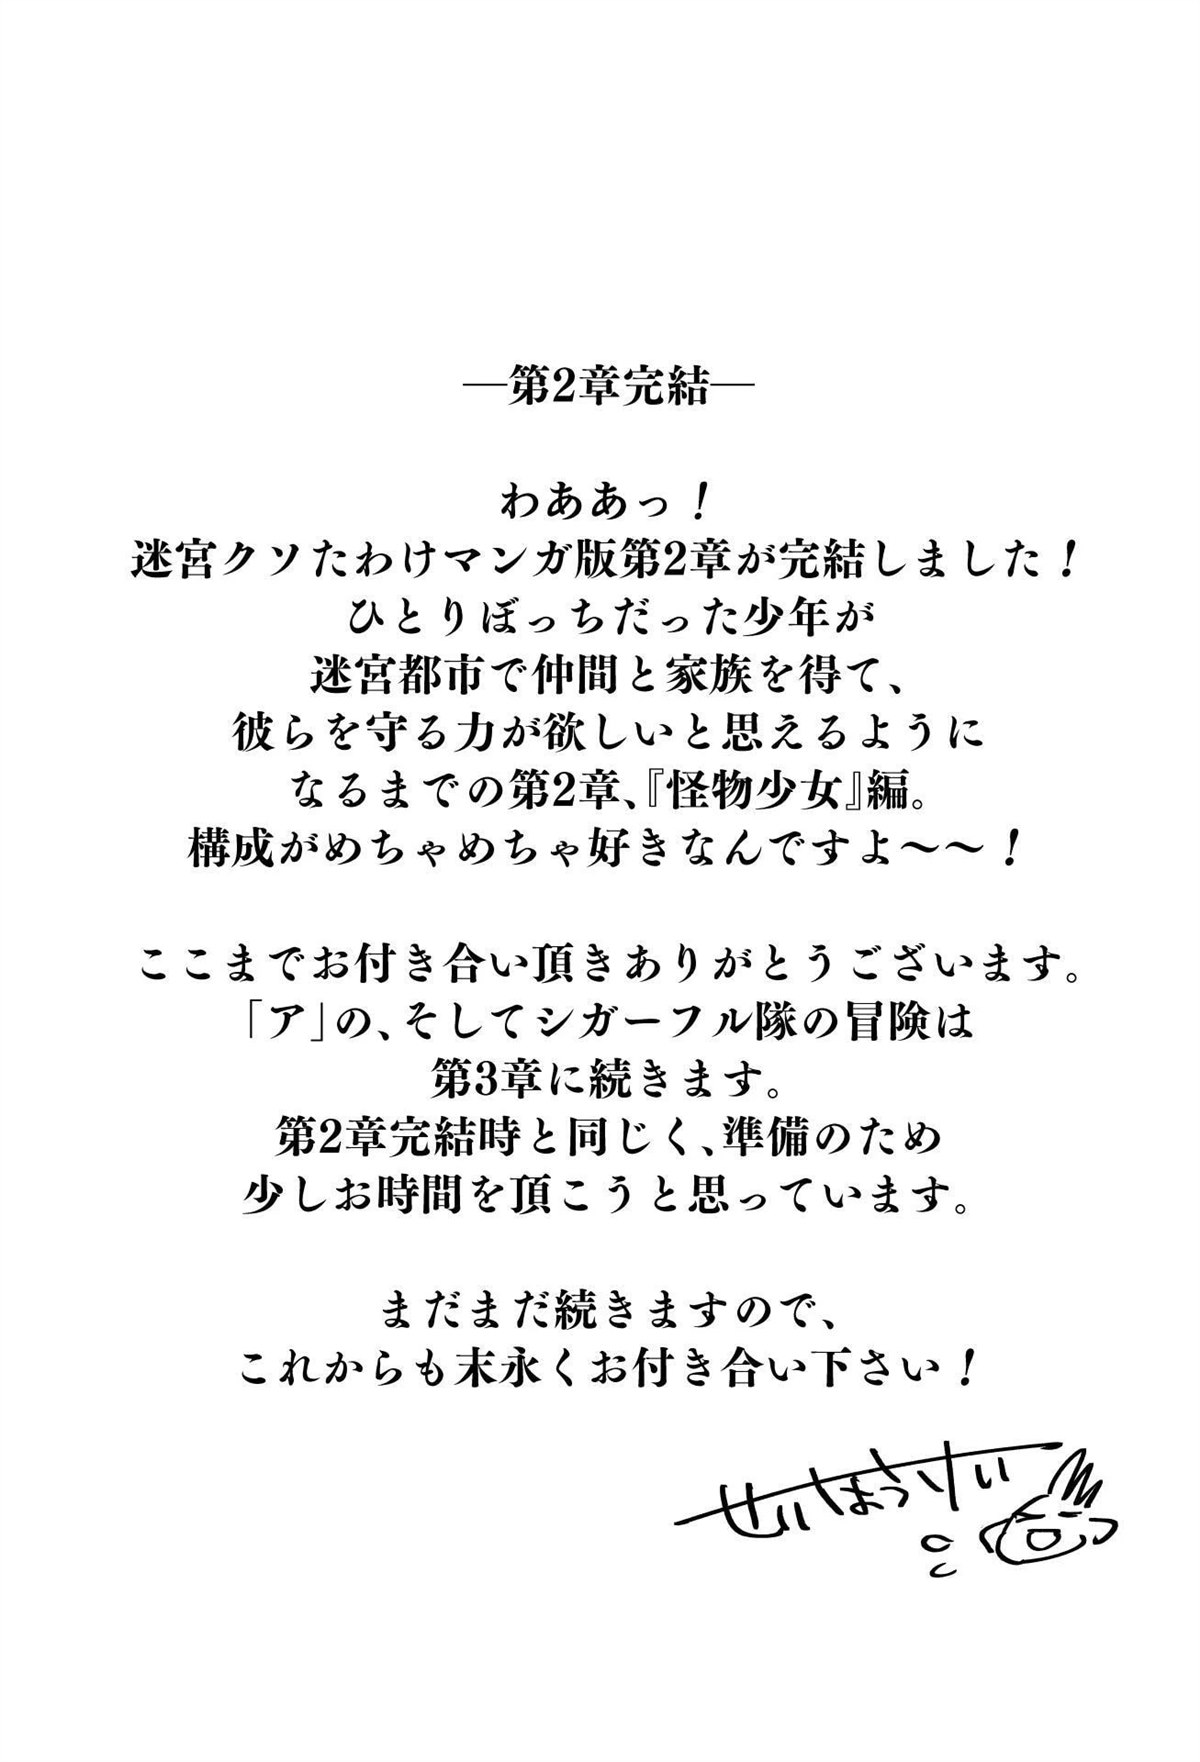 —第2章完結—
わああっ！
迷宮クソたわけマンガ版第2章が完結しました！
ひとりぼっちだった少年が
迷宮都市で仲間と家族を得て、
彼らを守る力が欲しいと思えるように
なるまでの第2章、『怪物少女』編。
構成がめちゃめちゃ好きなんですよ〜〜！
ここまでお付き合い頂きありがとうございます。
「ア」の、そしてシガーフル隊の冒険は
第3章に続きます。
第2章完結時と同じく、準備のため
少しお時間を頂こうと思っています。
まだまだ続きますので、
これからも末永くお付き合い下さい！
せいほうけい